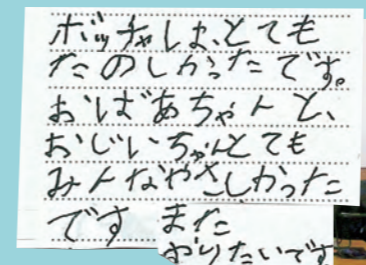 ボッチャしよ、とても
たのしかったです。
おばあちゃんと、
おじいちゃんとても
みんなやさしかった
です また
やりたいです